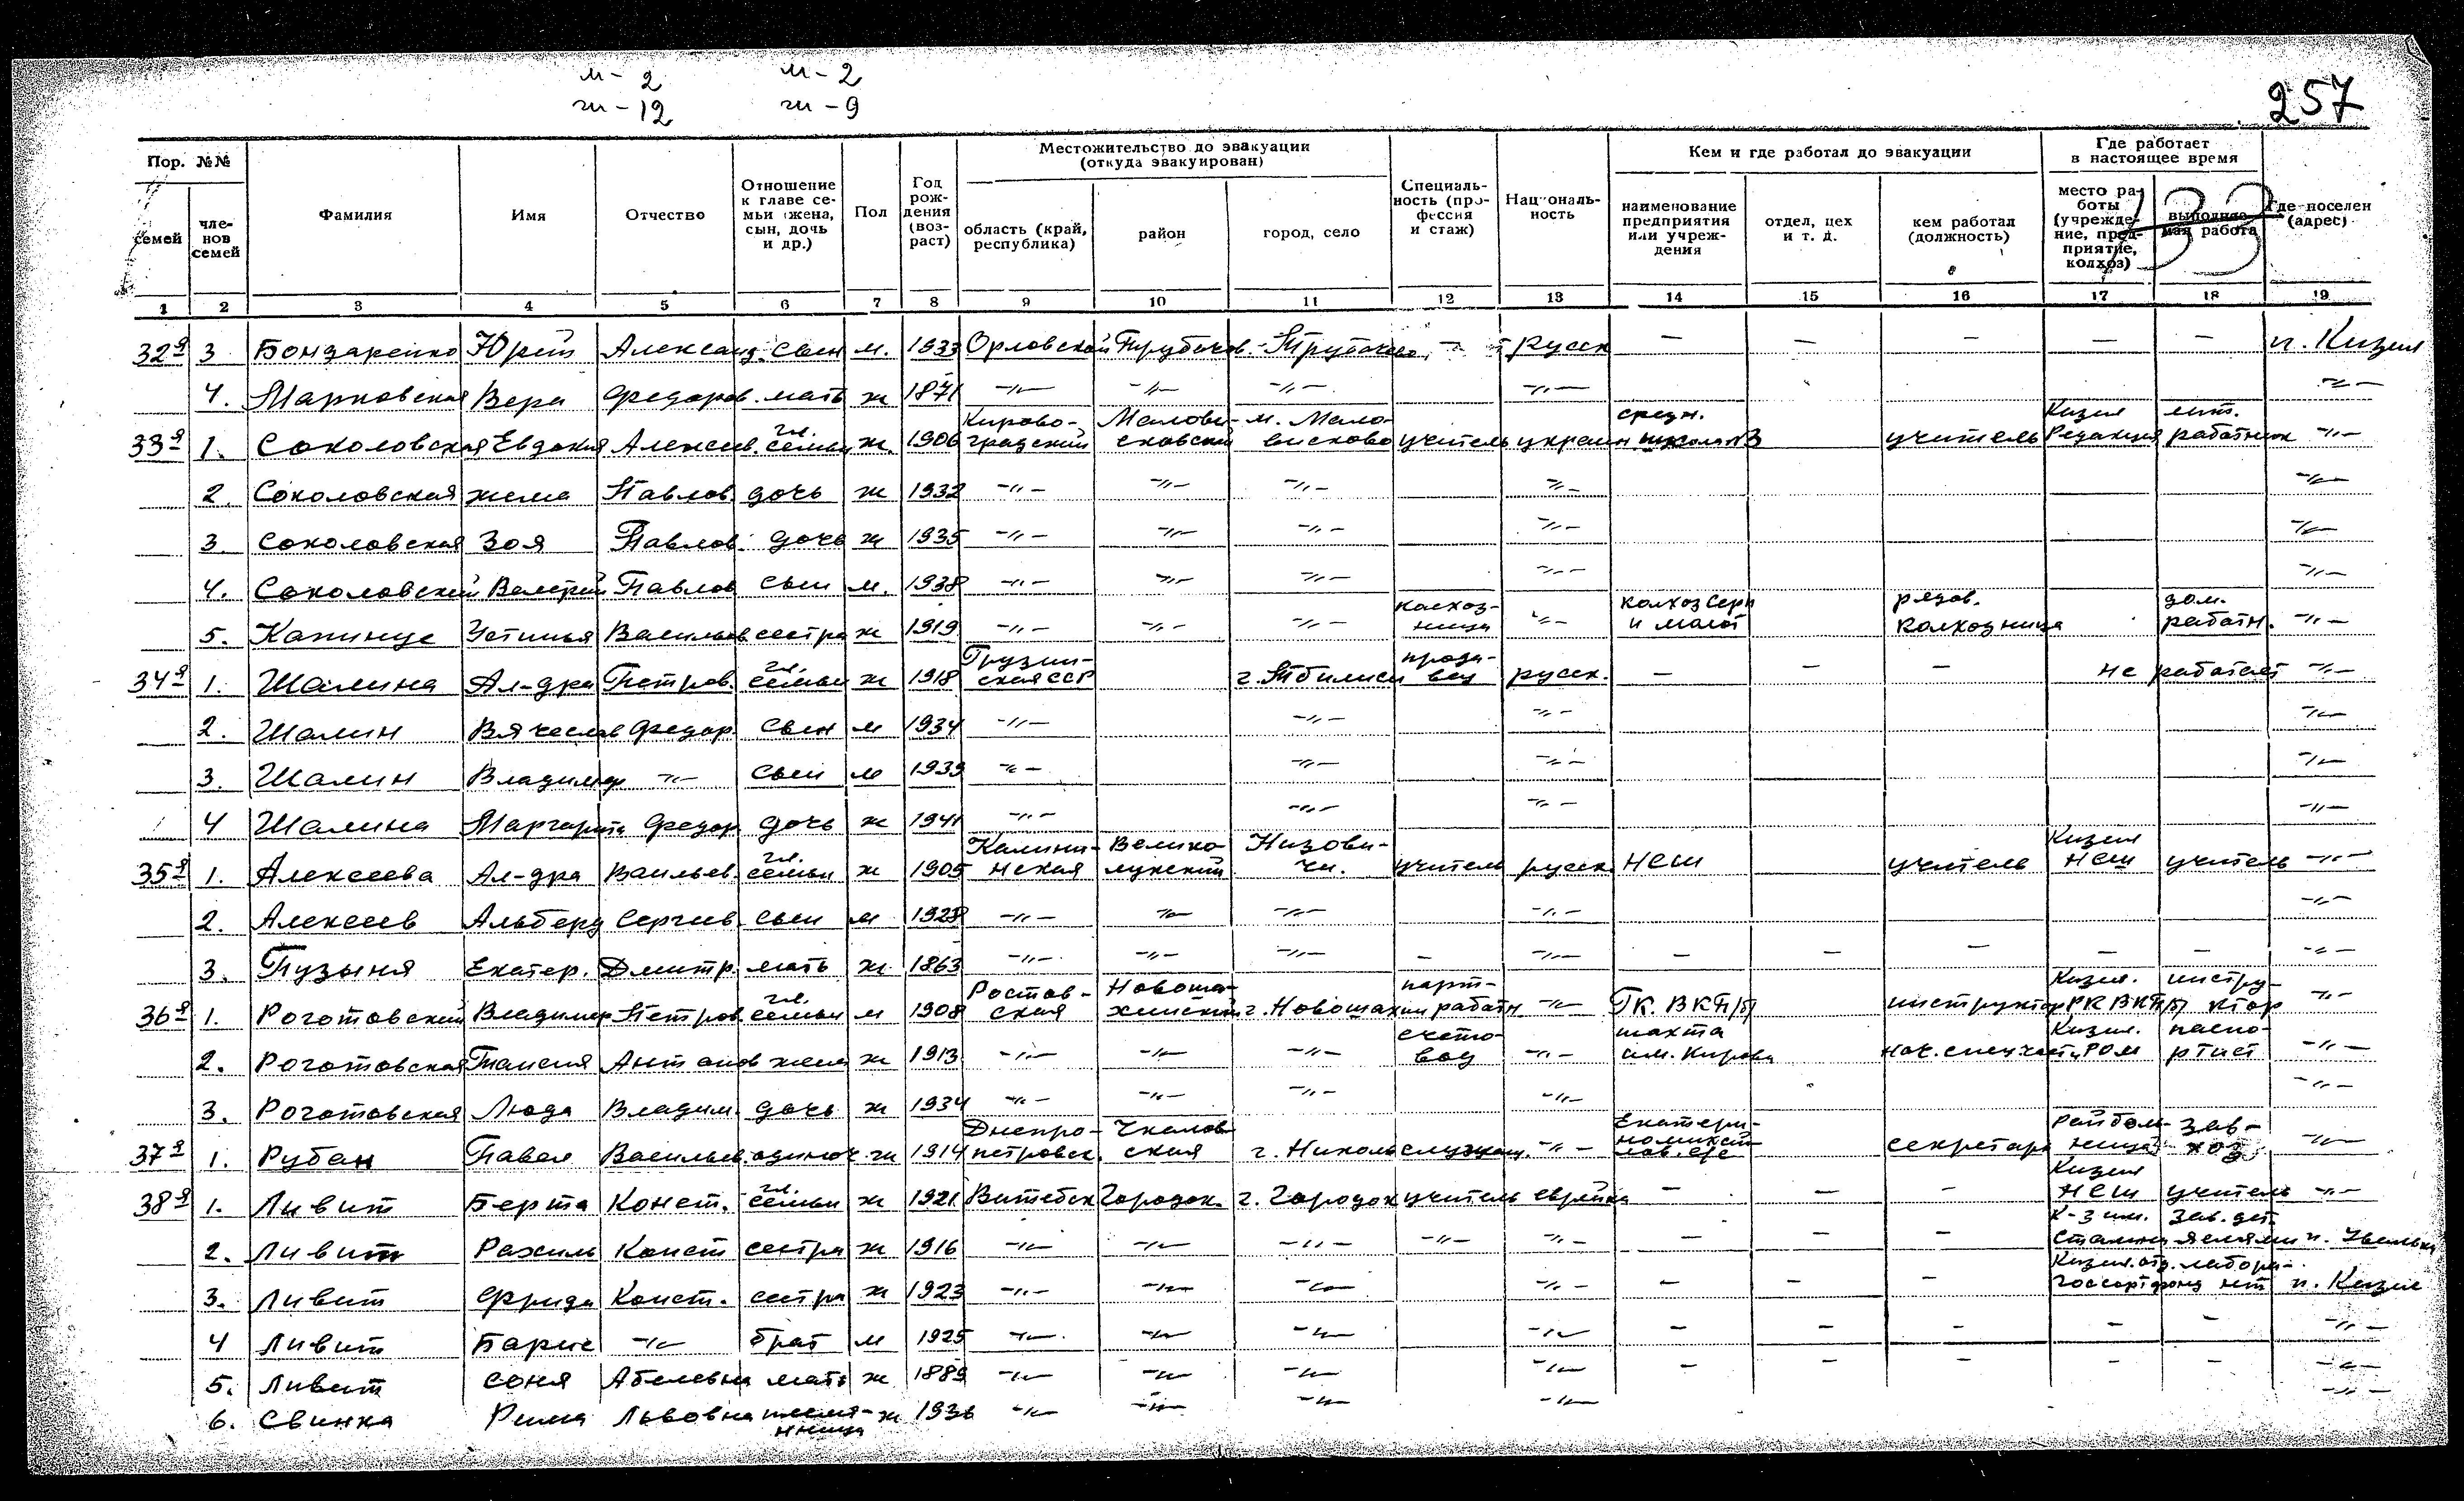 м - 2 м - 2
ж - 12 ж - 9
257
Пор. №№ Местожительство до эвакуации (откуда эвакуирован) Кем и где работал до эвакуации Где работает в настоящее время
семей членов семей Фамилия Имя Отчество Отношение к главе семьи (жена, сын, дочь и др.) Пол Год рождения (возраст) область (край, республика) район город, село Специальность (профессия и стаж) Национальность наименование предприятия или учреждения отдел, цех и т. д. кем работал (должность) место работы (учреждение, предприятие, колхоз) выполняемая работа Где поселен (адрес)
133
1 2 3 4 5 6 7 8 9 10 11 12 13 14 15 16 17 18 19
32й 3 Бондаренко Юрий Александ. сын м. 1933 Орловской Трубчов. Трубчево - русск - - - - - п. Кизил
4. Марковская Вера Федоров. мать ж 1871 -"- -"- -"- -"- -"-
33й 1. Соколовская Евдокия Алексеев. гл. семьи ж. 1906 Кировоградский Маловисковский м. Маловисково учитель украин. средн. школа №3 учитель Кизил Редакция лит. работник -"-
2. Соколовская жема Павлов. дочь ж 1932 -"- -"- -"- -"- -"-
3 Соколовская Зоя Павлов. дочь ж 1935 -"- -"- -"- -"- -"-
4. Соколовский Валерий Павлов сын м. 1938 -"- -"- -"- -"- -"-
5. Устинья Васильев сестра ж 1919 -"- -"- -"- колхозница -"- колхоз Серп и молот рядов. колхозница дом. работн. -"-
34й 1. Шалина Ал-дра Петров. гл. семьи ж 1918 Грузинская ССР г. Тбилиси продавец русск. - - - не работает -"-
2. Шалин Вячеслав Федор. сын м 1934 -"- -"- -"- -"-
3. Шалин Владимир -"- сын м 1939 -"- -"- -"- -"-
4 Шалина Маргарита Федор дочь ж 1941 -"- -"- -"- -"-
35й 1. Алексеева Ал-дра Васильев. гл. семьи ж 1905 Калининская Великолукский Низовичи. учитель русск. НСШ учитель Кизил НСШ учитель -"-
2. Алексеев Альберд Сергеев. сын м 1928 -"- -"- -"- -"- -"-
3. Пузыня Екатер. Дмитр. мать ж 1863 -"- -"- -"- - -"- - - - - - -"-
36й 1. Роготовский Владимир Петров. гл. семьи м 1908 Ростовская Новошахинский г. Новошахин партработн -"- ГК. ВКП/б/ инструктор Кизил. РК ВКП/б/ инструктор -"-
2. Роготовская Таисия Антонов жена ж 1913 -"- -"- -"- счетовод -"- шахта им. Кирова нач. спецчасти Кизил. РОМ паспортист -"-
3. Роготовская Люда Владим. дочь ж 1934 -"- -"- -"- -"- -"-
37й 1. Рубан Павел Васильев. одиноч. 1914 Днепропетровск. Чкаловская г. Николь служащ. -"- секретарь райбольница завхоз -"-
38й 1. Ливит Берта Конст. гл. семьи ж 1921 Витебск Городок. г. Городок учитель еврейка - - - Кизил НСШ учитель -"-
2. Ливит Рахиль Конст сестра ж 1916 -"- -"- -"- -"- -"- - - - К-з им. Сталина зав. дет. яслями
3. Ливит Фрида Конст. сестра ж 1923 -"- -"- -"- -"- - - - Кизил. отд. госсортфонд п. Кизил
4 Ливит Барис -"- брат м 1925 -"- -"- -"- -"- - - - - - -"-
5. Ливит Соня Абелевна мать ж 1889 -"- -"- -"- -"- - - - - - -"-
6. Свинка Рима Львовна племянница ж 1936 -"- -"- -"- -"- -"-